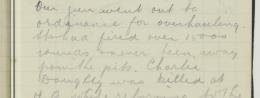 Our gun went out to
ordinance for overhauling.
She had fired over 15000
rounds & never been away
from the pits. Charlie
Doughty was killed at
returning to the